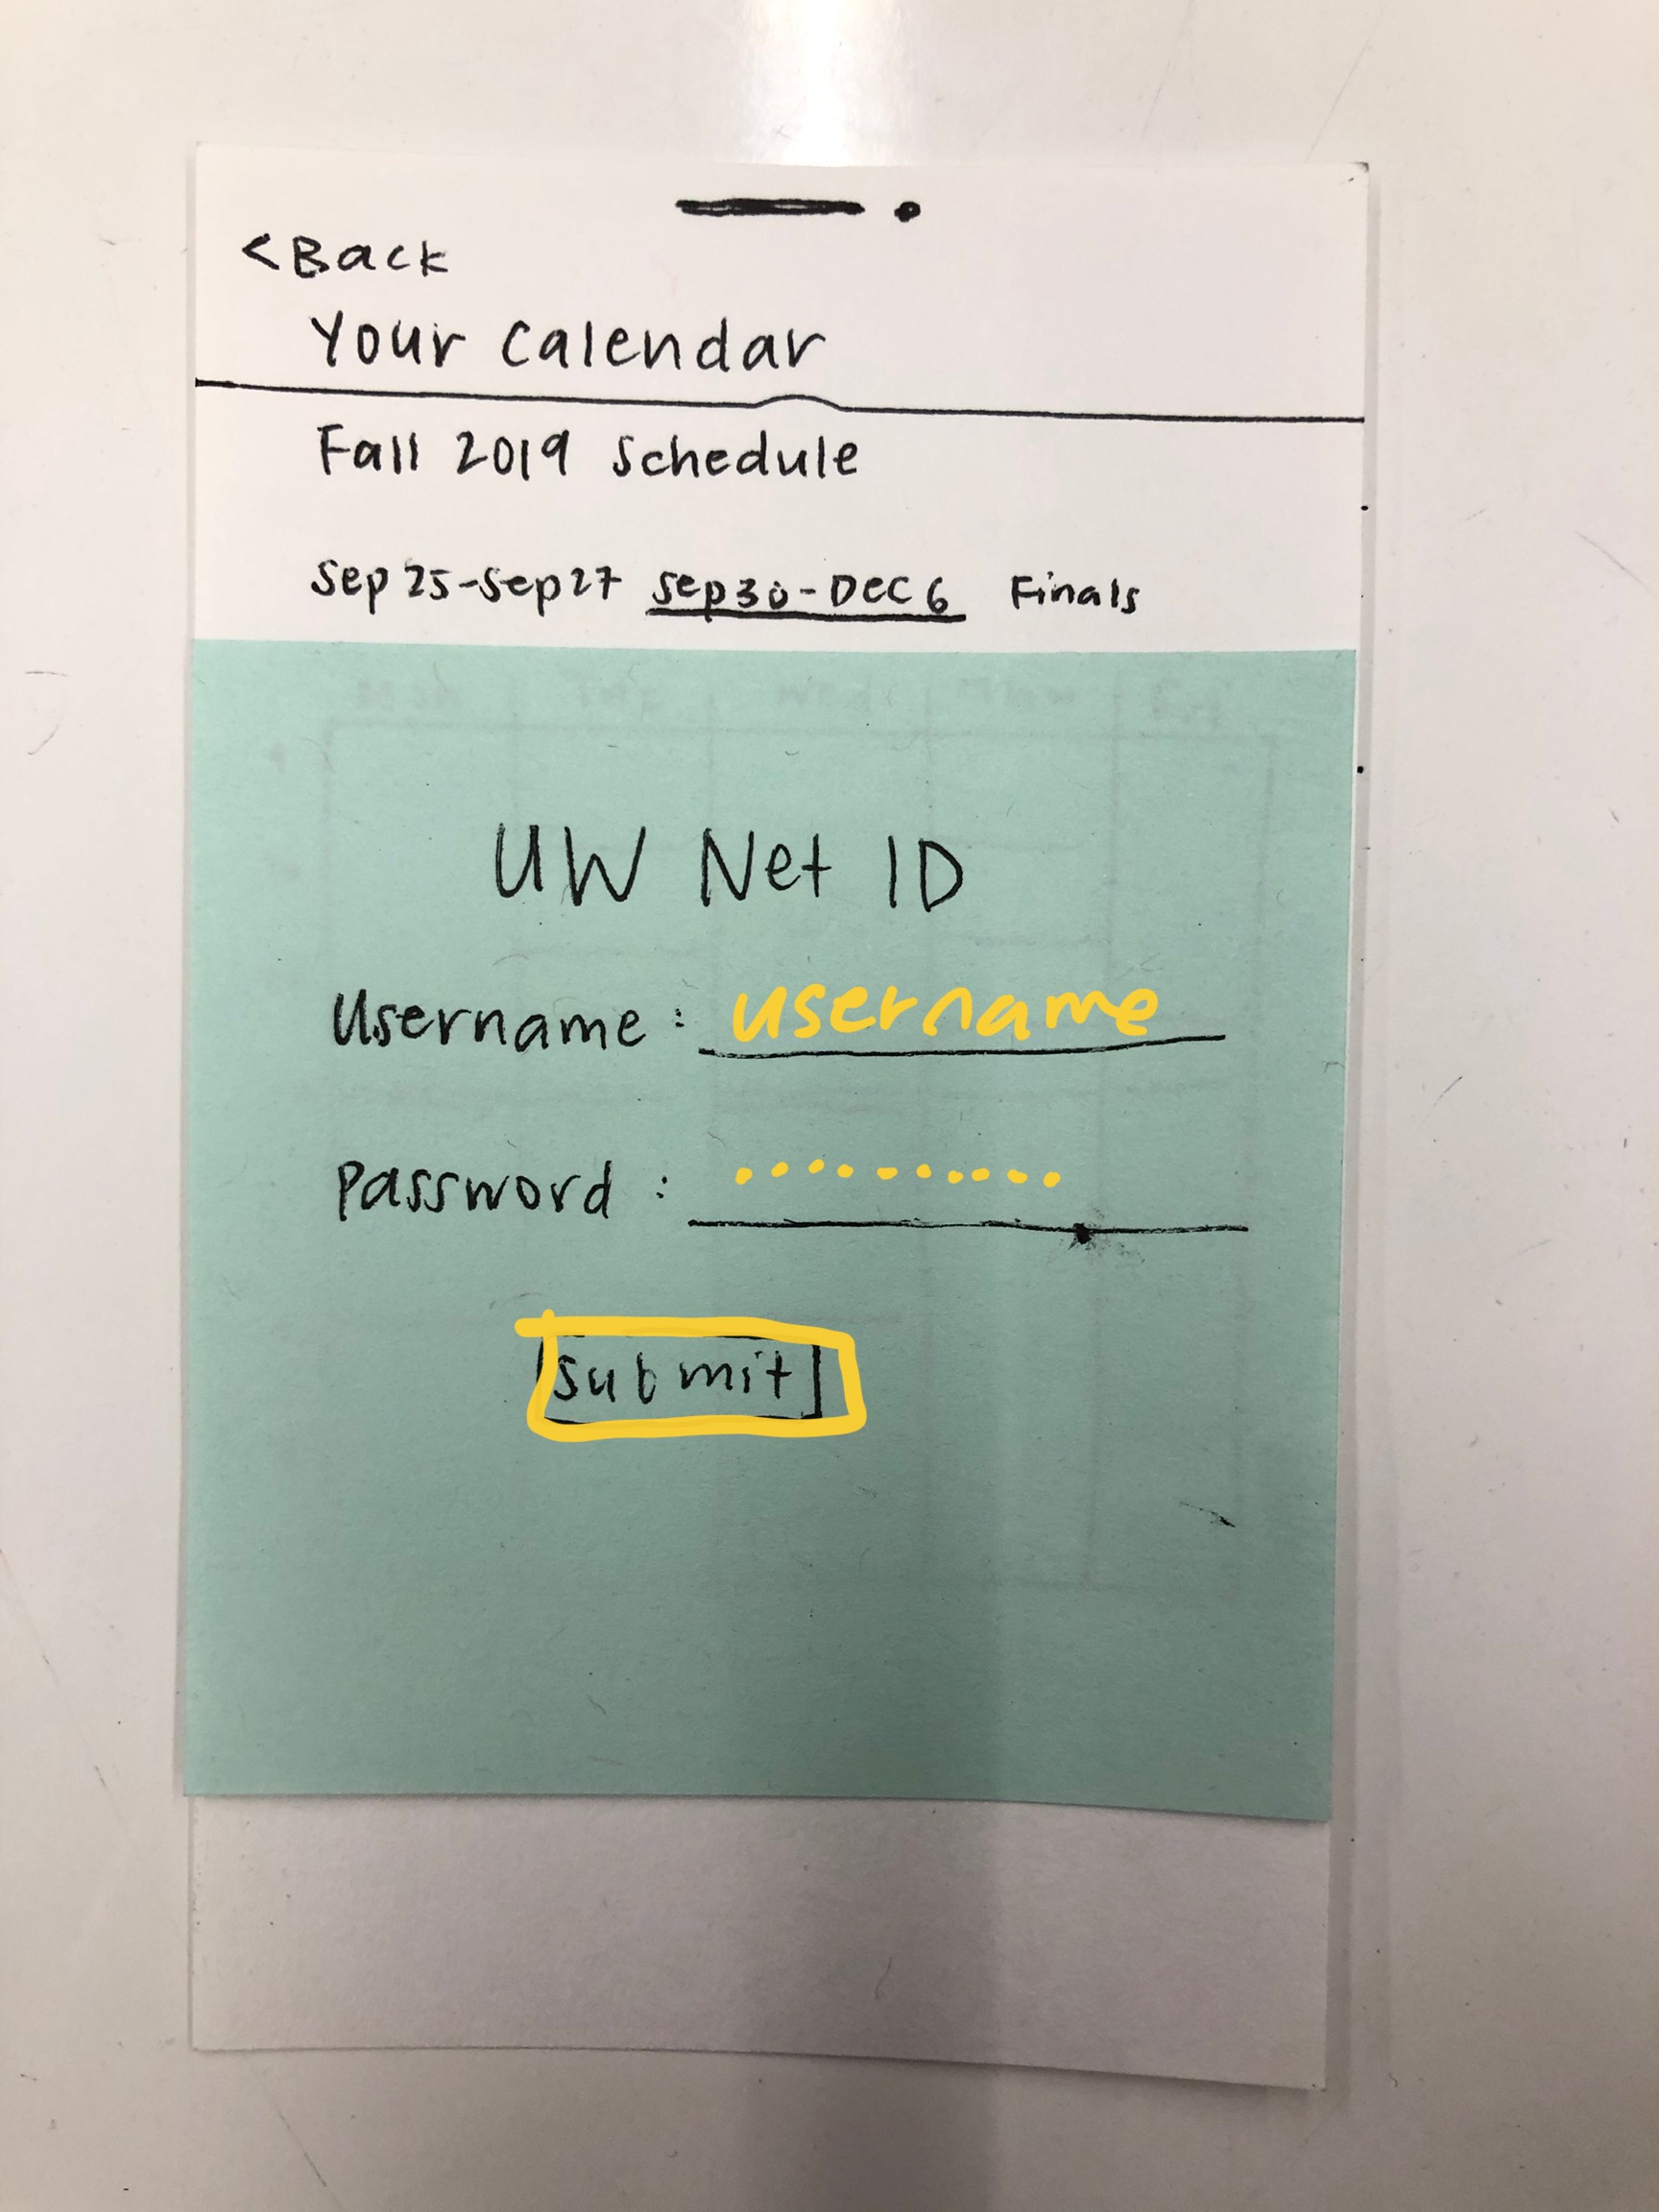 <Back
Your Calendar
Fall 2019 Schedule
Sep 25-Sep 27 Sep 30 - DEC 6 Finals
UW Net ID
Username: username
Password: ..........
submit